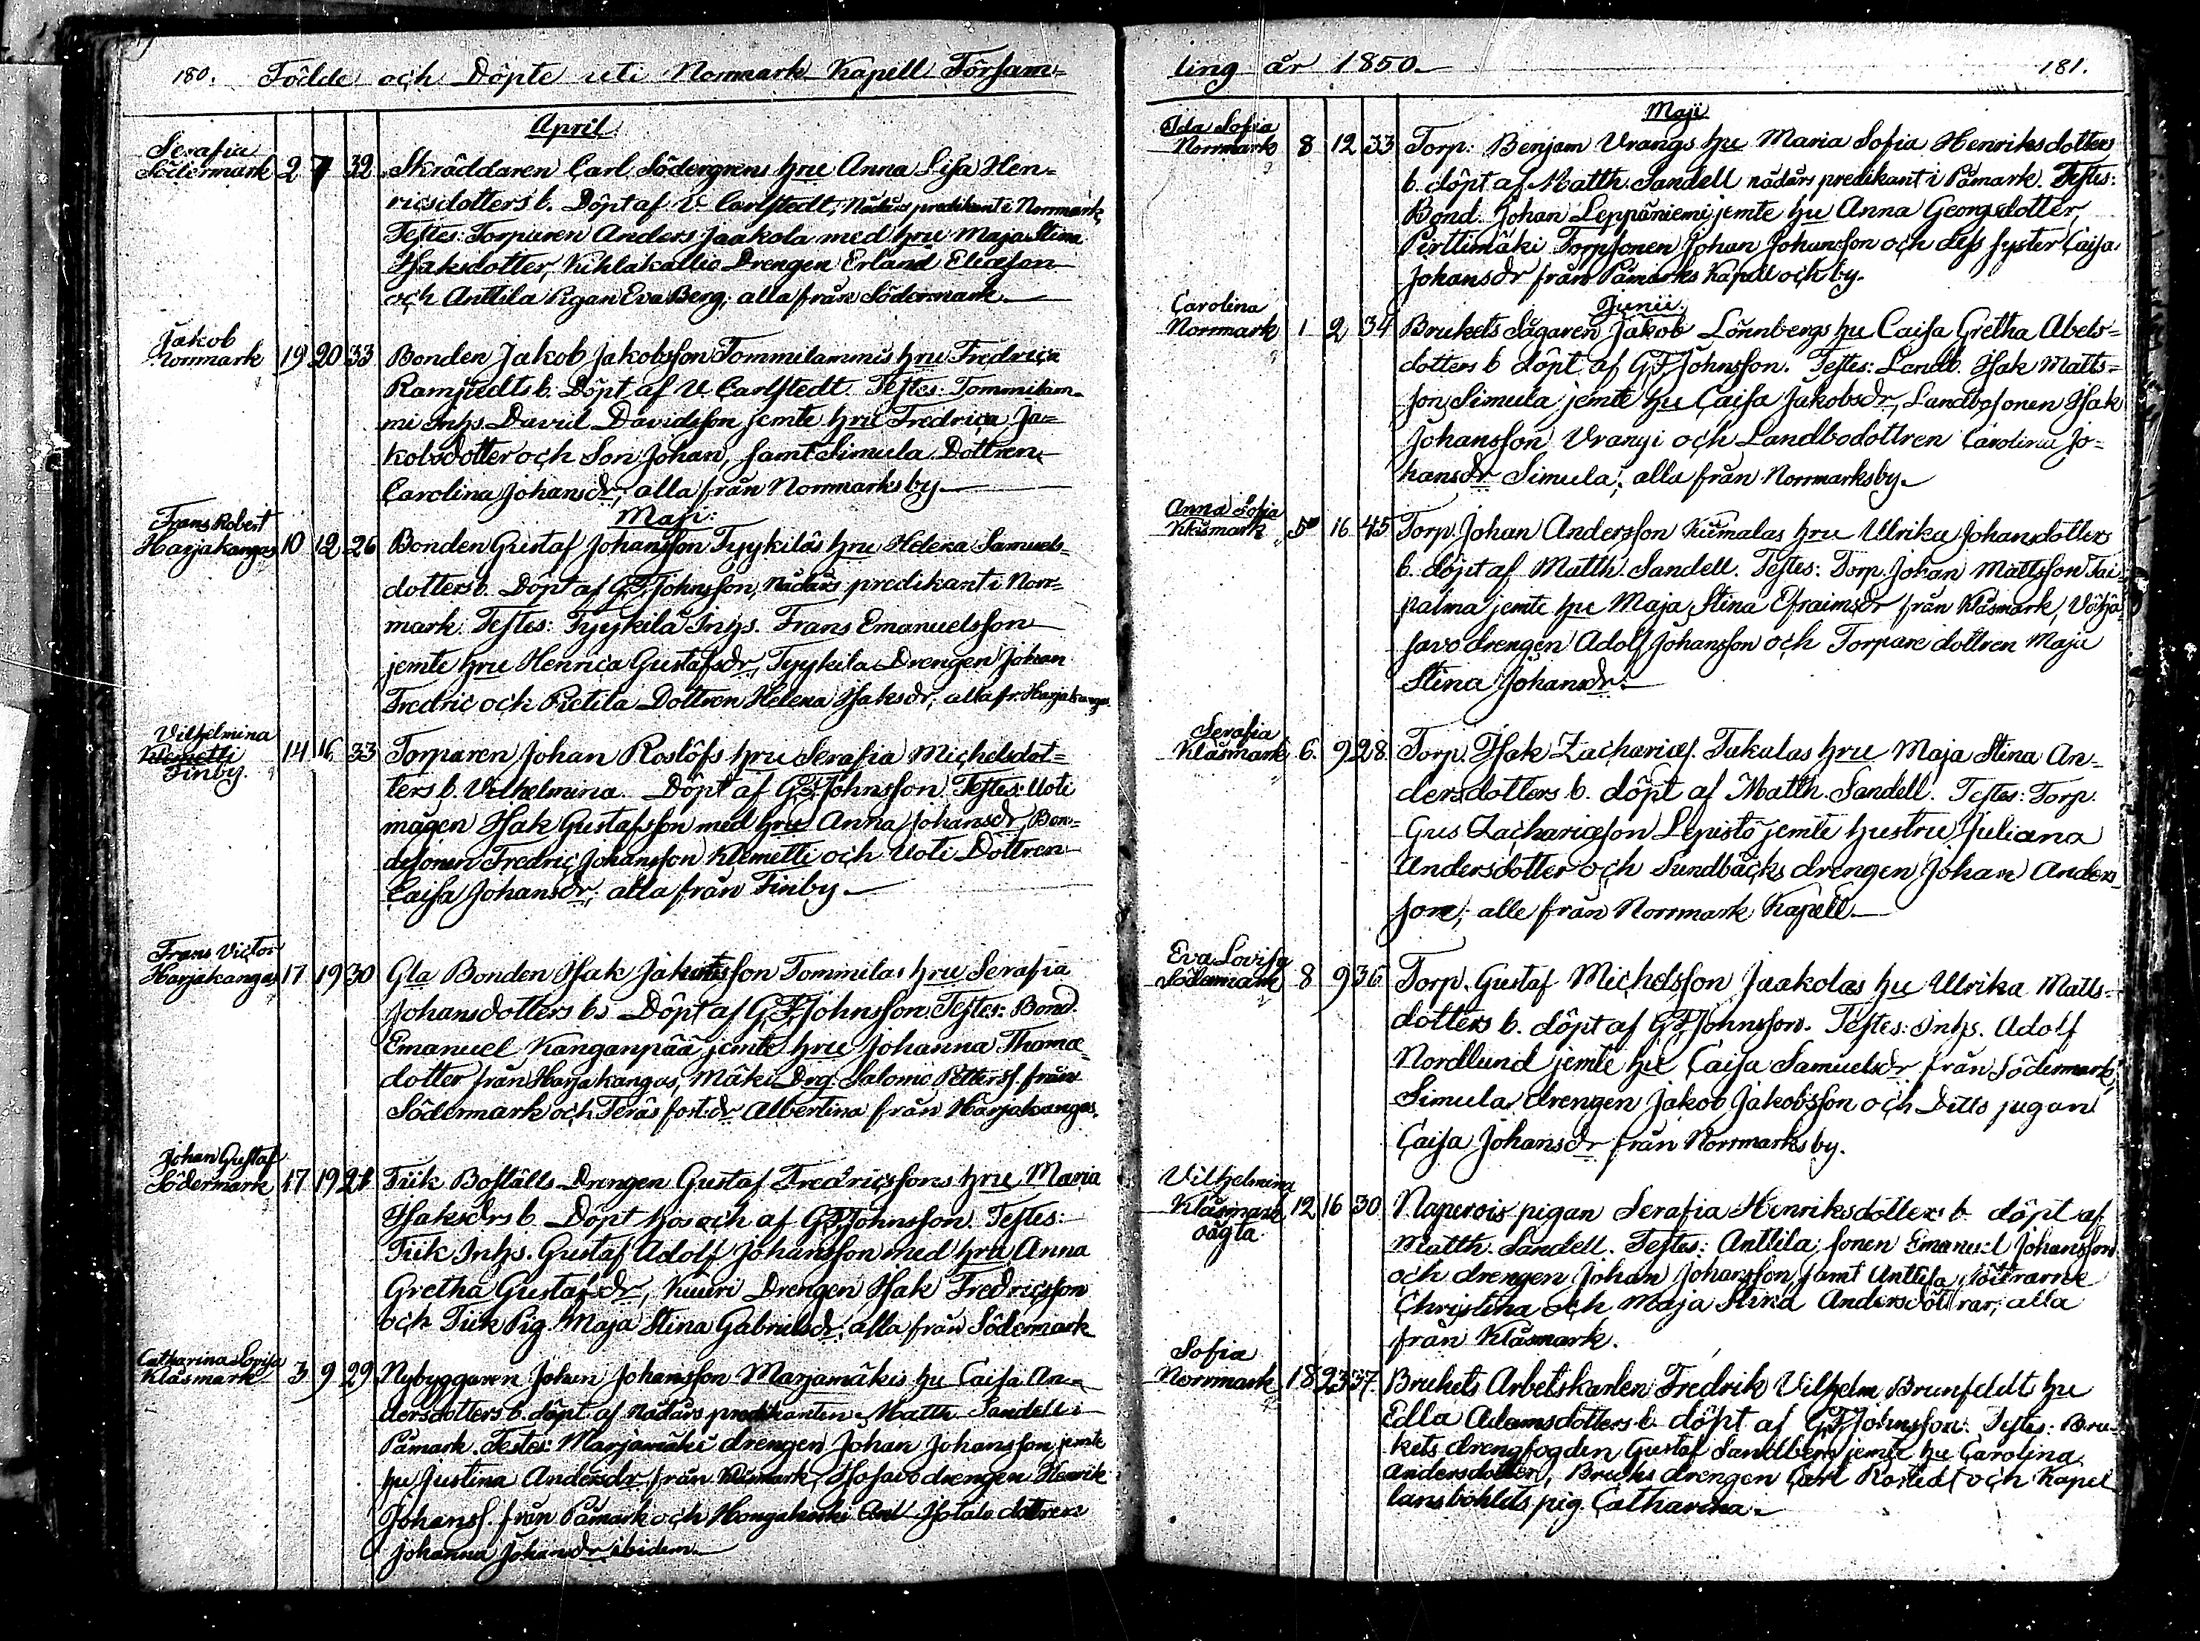 180. Födde och Döpte uti Norrmark Kapell Församling år 1850. 181.
April
Serafia
Södermark 2 7 32 Skräddaren Carl Södergrens hru Anna Lisa Hen=
ricsdotters b. Döpt af V. Carlstedt, Nådårs predikant i Norrmark
Testes: Torparen Anders Jaakola med hru Maja Stina
Isaksdotter, Kihlakallio Drengen Erland Eliæson
och Anttila Pigan Eva Berg, alla från Södermark.
Jakob
Norrmark 19 20 33 Bonden Jakob Jakobsson Tommilammis hru Fredrica
Ramstedts b. Döpt af V. Carlstedt. Testes: Tommilam=
mi Inhs. David Davidsson jemte hru Fredrica Ja=
kobsdotter och Son Johan, samt Simula Dottren
Carolina Johansdr, alla från Norrmarksby.
Maji:
Frans Robert
Harjakangas 10 12 26 Bonden Gustaf Johansson Tyykiläs hru Helena Samuels=
dotters b. Döpt af G.F. Johnsson, Nådårs predikant i Norr=
mark. Testes: Tyykilä Inhs. Frans Emanuelsson
jemte hru Henrica Gustafsdr, Tyykilä Drengen Johan
Fredric och Pietila Dottren Helena Isaksdr, alla fr. Harjakangas
Vilhelmina
Klemetti
Finby. 14 16 33 Torparen Johan Roslöfs hru Serafia Michelsdot=
ters b. Vilhelmina. Döpt af G.F. Johnsson. Testes: Uoti
mågen Isak Gustafsson med hru Anna Johansdr, Bon=
desonen Fredric Johansson Klemetti och Uoti Dottren
Caisa Johansdr, alla från Finby.
Frans Victor
Harjakangas 17 19 30 Gla Bonden Isak Jakobsson Tommilas hru Serafia
Johansdotters b. Döpt af G.F. Johnsson. Testes: Bond.
Emanuel Kanganpää jemte hru Johanna Thomæ=
dotter från Harjakangas, Mäki Drg. Salomo Petterss. från
Södermark och Teräs fost.dr Albertina från Harjakangas.
Johan Gustaf
Södermark 17 19 21 Tiik Boställs Drengen Gustaf Fredricssons hru Maria
Isaksdrs b. Döpt hos och af G.F. Johnsson. Testes:
Tiik Inhs. Gustaf Adolf Johansson med hru Anna
Gretha Gustafsdr, Kuuri Drengen Isak Fredricsson
och Tiik Pig. Maja Stina Gabrielsdr, alla från Södermark
Catharina Lovisa
Klåsmark 3 9 29 Nybyggaren Johan Johansson Marjamäkis hu Caisa An=
dersdotters b. döpt af Nådårs predikanten Matth. Sandell i
Påmark. Testes: Marjamäki drengen Johan Johansson jemte
hu Justina Andersdr från Klåsmark, Isosavo drengen Henrik
Johanss. från Påmark och Hongakoski Isotalo dottren
Johanna Johansdr ibidem.
Maji
Ida Sofia
Norrmark 8 12 33 Torp. Benjam Vrangs hu Maria Sofia Henriksdotters
b. döpt af Matth. Sandell nådårs predikant i Påmark. Testes:
Bond. Johan Leppäniemi jemte hu Anna Georgsdotter,
Perttimäki Torpsonen Johan Johansson och dess syster Caisa
Johansdr från Påmarks Kapell och by.
Junii
Carolina
Norrmark 1 2 34 Brukets Sågaren Jakob Lönnbergs hu Caisa Gretha Abels=
dotters b. döpt af G.F. Johnsson. Testes: Landb. Isak Matts=
son Simula jemte hu Caisa Jakobsdr, Landbosonen Isak
Johansson Vrangi och Landbodottren Carolina Jo=
hansdr Simula; alla från Norrmarksby.
Anna Sofia
Klåsmark 5 16 45 Torp. Johan Andersson Kiimalas hru Ullrika Johansdotters
b. döpt af Matth. Sandell. Testes: Torp. Johan Mattsson Tai=
palma jemte hu Maja Stina Efraimsdr från Klåsmark, Vähä=
savo drengen Adolf Johansson och Torpare dottren Maja
Stina Johansdr.
Serafia
Klåsmark 6. 9 28. Torp. Isak Zachariæs. Takalas hru Maja Stina An=
dersdotters b. döpt af Matth. Sandell. Testes: Torp.
Gus Zachariæson Lepistö jemte hustru Juliana
Andersdotter och Sundbäcks drengen Johan Anders=
son, alle från Norrmark Kapell.
Eva Lovisa
Södermark 8 9 36 Torp. Gustaf Michelsson Jaakolas hu Ullrika Matts=
dotters b. döpt af G.F. Johnsson. Testes: Inhs. Adolf
Nordlund jemte hu Caisa Samuelsdr från Södermark,
Simula drengen Jakob Jakobsson och Ditto pigan
Caisa Johansdr från Norrmarksby.
Vilhelmina
Klåsmark
oägta. 12 16 30 Naperois pigan Serafia Henriksdotters b. döpt af
Matth. Sandell. Testes: Anttila sonen Emanuel Johansson
och drengen Johan Johansson, samt Anttila döttrarne
Christina och Maja Stina Andersdöttrar, alla
från Klåsmark.
Sofia
Norrmark 18 23 37 Brukets Arbetskarlen Fredrik Vilhelm Brunfeldt hu
Edla Adamsdotters b. döpt af G.F. Johnsson. Testes: Bru=
kets drengfogden Gustaf Sandberg jemte hu Carolina
Andersdotter, Bruks drengen Carl Rostedt och Kapel
lansbohlets pig. Catharina.